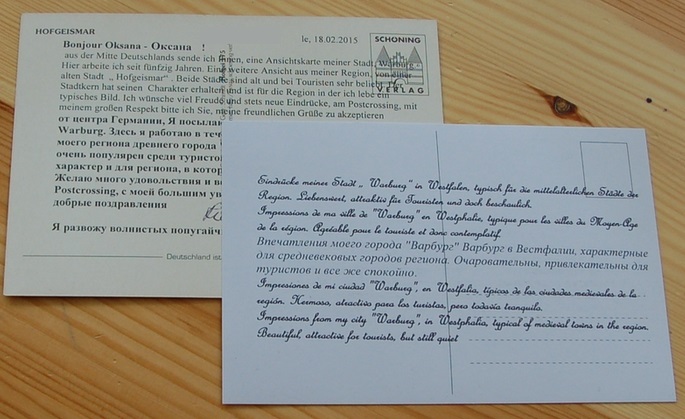 HOFGEISMAR
Bonjour Oksana - Оксана !
le, 18.02.2015
SCHÖNING
VERLAG
aus der Mitte Deutschlands sende ich Ihnen, eine Ansichtskarte meiner Stadt „Warburg“
Hier arbeite ich seit fünfzig Jahren. Eine weitere Ansicht aus meiner Region, von einer
alten Stadt „ Hofgeismar“ . Beide Städte sind alt und bei Touristen sehr beliebt.
Stadtkern hat seinen Charakter erhalten und ist für die Region in der ich lebe ein
typisches Bild. Ich wünsche viel Freude und stets neue Eindrücke, am Postcrossing, mit
meinem großen Respekt bitte ich Sie, meine freundlichen Grüße zu akzeptieren
от центра Германии, Я посылаю
Warburg. Здесь я работаю в теч
моего региона древнего города
очень популярен среди туристо
характер и для региона, в котор
Желаю много удовольствия и
Postcrossing, с моей большим ув
добрые поздравления
Я развожу волнистых попугайч
Deutschland ist
Eindrücke meiner Stadt „ Warburg" in Westfalen, typisch für die mittelalterlichen Städte der
Region. Liebenswert, attraktiv für Touristen und doch beschaulich.
Impressions de ma ville de "Warburg" en Westphalie, typique pour les villes du Moyen-Age
de la région. Agréable pour le touriste et donc contemplatif.
Впечатления моего города "Варбург" Варбург в Вестфалии, характерные
для средневековых городов региона. Очаровательны, привлекательны для
туристов и все же спокойно.
Impresiones de mi ciudad "Warburg", en Westfalia, típicos de las ciudades medievales de la
región. Hermoso, atractivo para los turistas, pero todavía tranquilo.
Impressions from my city "Warburg", in Westphalia, typical of medieval towns in the region.
Beautiful, attractive for tourists, but still quiet